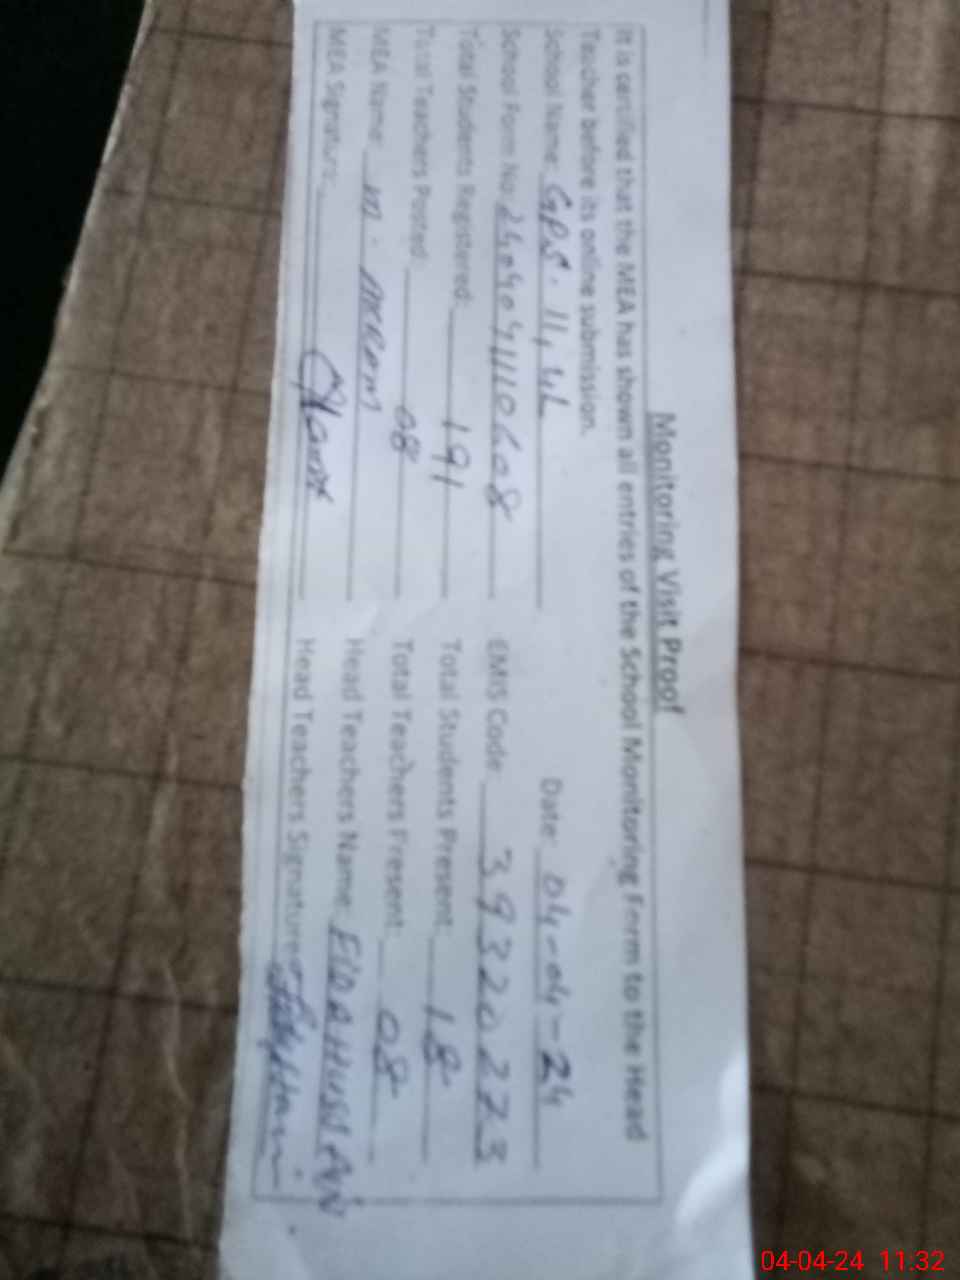 Monitoring Visit Proof
It is certified that the MEA has shown all entries of the School Monitoring Form to the Head
Teacher before its online submission.
School Name: GPS. 11, 4L Date: 04-04-24
School Form No: EMIS Code: 39320223
Total Students Registered: 191 Total Students Present: 18
Total Teachers Posted: 08 Total Teachers Present: 08
MEA Name: M. Akram Head Teachers Name: FIDA HUSSAIN
MEA Signature: Head Teachers Signature:
04-04-24 11:32